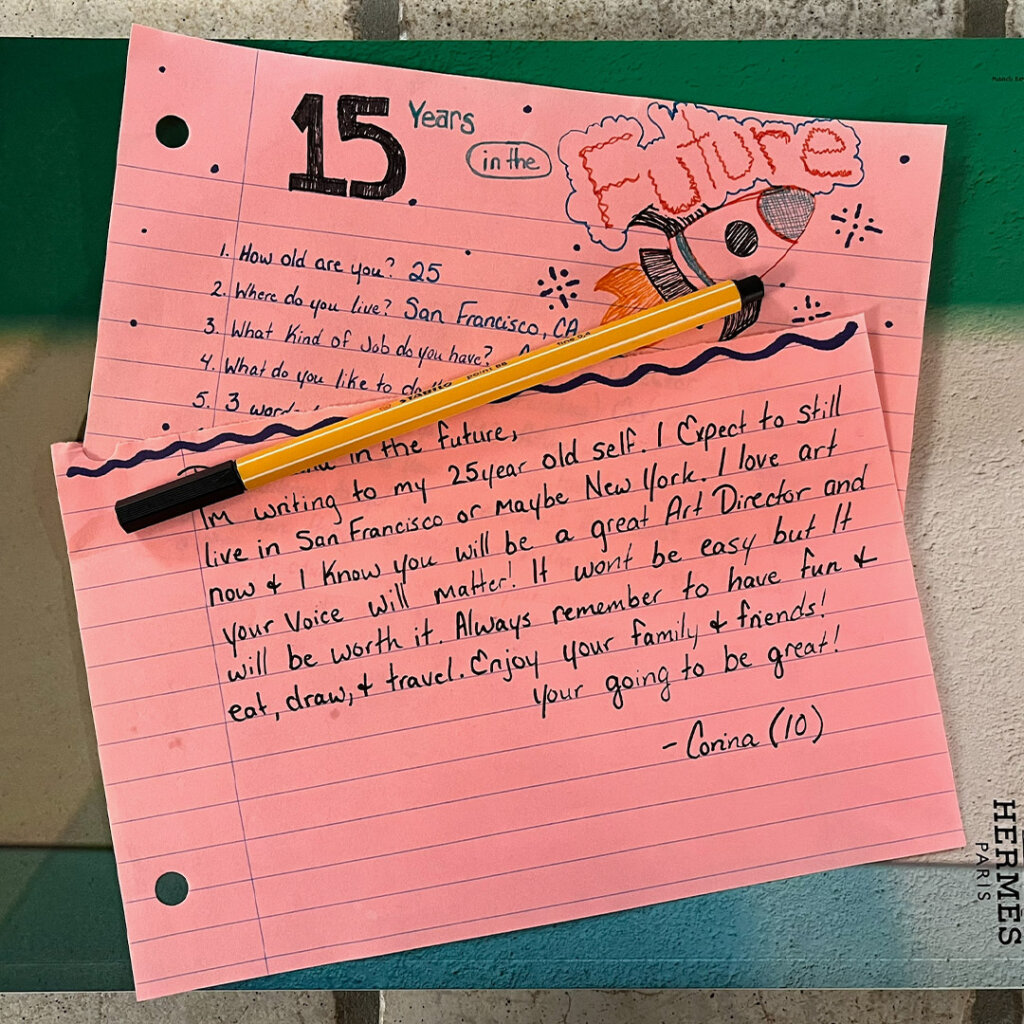 15 Years in the Future
1. How old are you? 25
2. Where do you live? San Francisco, CA
3. What Kind of Job do you have?
4. What do you like to
5. 3
in the future,
Im writing to my 25year old self. I Expect to still
live in San Francisco or Maybe New York. I love art
now & I Know you will be a great Art Director and
your Voice will matter! It wont be easy but It
will be worth it. Always remember to have fun &
eat, draw, & travel. Enjoy your family & friends!
your going to be great!
- Corina (10)
STABILO point 88
HERMÈS
PARIS